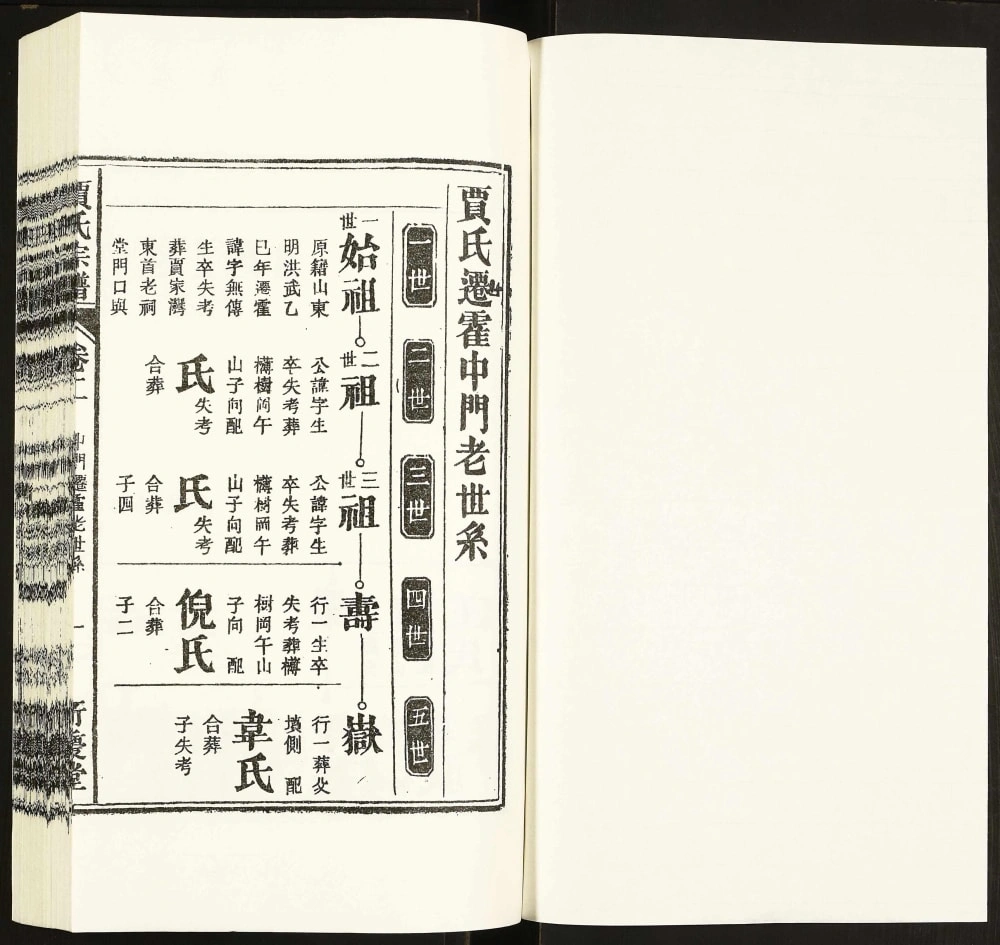 賈氏遷霍中門老世系
一世
二世
三世
四世
五世
一世
始祖
原籍山東
明洪武乙
巳年遷霍
諱字無傳
生卒失考
葬賈家灣
東首老祠
堂門口與
二世
祖
公諱字生
卒失考葬
槫樹岡午
山子向配
氏失考
合葬
三世
祖
公諱字生
卒失考葬
槫樹岡午
山子向配
氏失考
合葬
子四
壽
行一生卒
失考葬槫
樹岡午山
子向 配
倪氏
合葬
子二
嶽
行一葬父
墳側 配
韋氏
合葬
子失考
賈氏宗譜
卷二
中門遷霍老世系
一